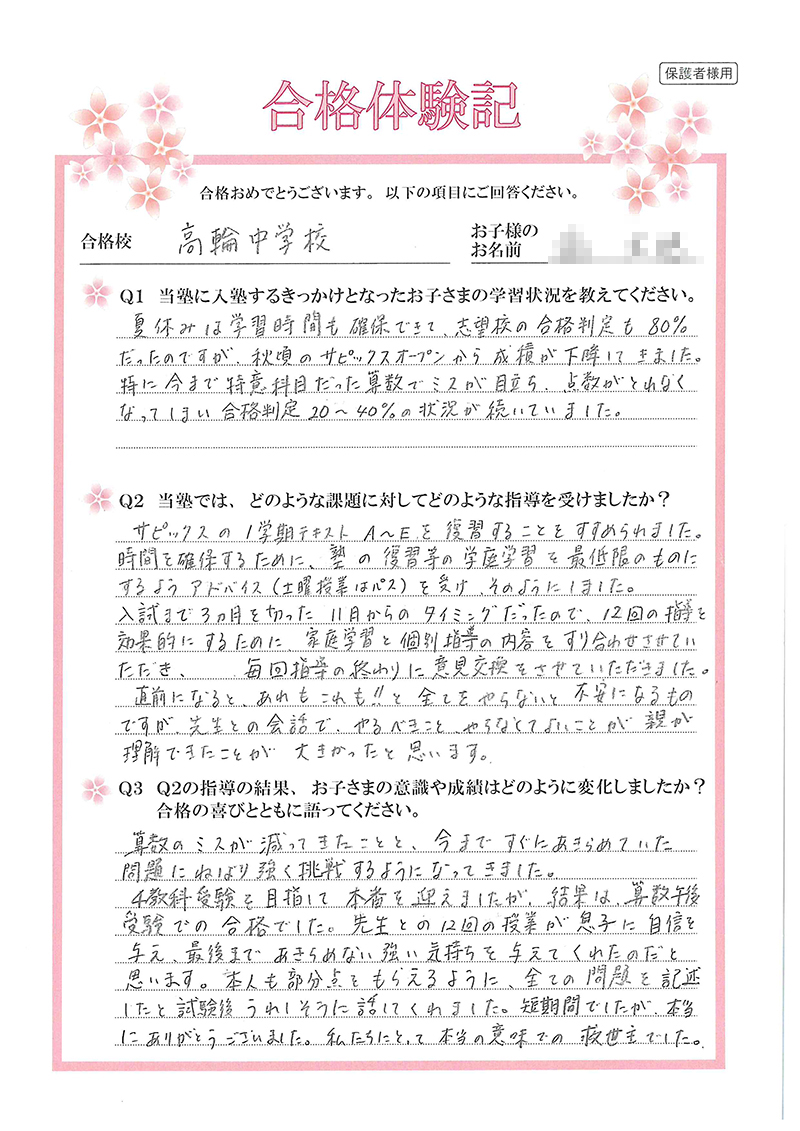 保護者様用
合格体験記
合格おめでとうございます。以下の項目にご回答ください。
合格校 高輪中学校
お子様の
お名前
Q1 当塾に入塾するきっかけとなったお子さまの学習状況を教えてください。
夏休みは学習時間も確保できて、志望校の合格判定も80%
だったのですが、秋頃のサピックスオープンから成績が下降してきました。
特に今まで特意科目だった算数でミスが目立ち、点数がとれなく
なってしまい合格判定20〜40%の状況が続いていました。
Q2 当塾では、どのような課題に対してどのような指導を受けましたか？
サピックスの1学期テキストA〜Eを復習することをすすめられました。
時間を確保するために、塾の復習等の学庭学習を最低限のものに
するようアドバイス(土曜授業はパス)を受け、そのようにしました。
入試まで3ヵ月を切った11月からのタイミングだったので、12回の指導を
効果的にするために、家庭学習と個別指導の内容をすり合わせさせてい
ただき、 毎回指導の終わりに意見交換をさせていただきました。
直前になると、あれもこれも!!と全てをやらないと不安になるもの
ですが、先生との会話で、やるべきこと、やらなくてよいことが親が
理解できたことが大きかったと思います。
Q3 Q2の指導の結果、お子さまの意識や成績はどのように変化しましたか？
合格の喜びとともに語ってください。
算数のミスが減ってきたことと、今まですぐにあきらめていた
問題にねばり強く挑戦するようになってきました。
4教科受験を目指して本番を迎えましたが、結果は、算数午後
受験での合格でした。先生との12回の授業が息子に自信を
与え、最後まであきらめない強い気持ちを与えてくれたのだと
思います。本人も部分点をもらえるように、全ての問題を記述
したと試験後うれしそうに話してくれました。短期間でしたが、本当
にありがとうございました。私たちにとって本当の意味での救世主でした。